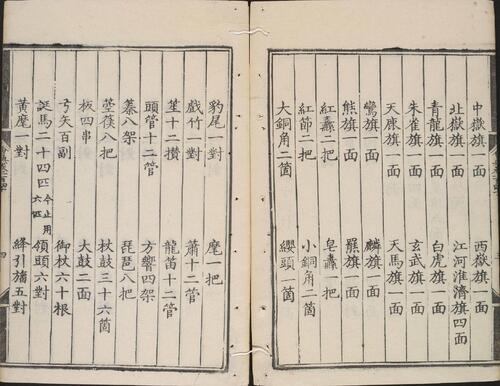 中嶽旗一面　西嶽旗一面
北嶽旗一面　江河淮濟旗四面
青龍旗一面　白虎旗一面
朱雀旗一面　玄武旗一面
天鹿旗一面　天馬旗一面
鸞旗一面　麟旗一面
熊旗一面　羆旗一面
紅纛二把　皂纛一把
紅節二把　小銅角二箇
大銅角二箇　纓頭一箇
豹尾一對　麾一把
戲竹一對　簫十二管
笙十二攢　龍笛十二管
頭管十二管　方響四架
蓁八架　琵琶八把
箜篌八把　杖鼓三十六箇
板四串　大鼓二面
弓矢百副　御杖六十根
誕馬二十四匹今止用六匹　領頭六對
黃麾一對　絳引旛五對